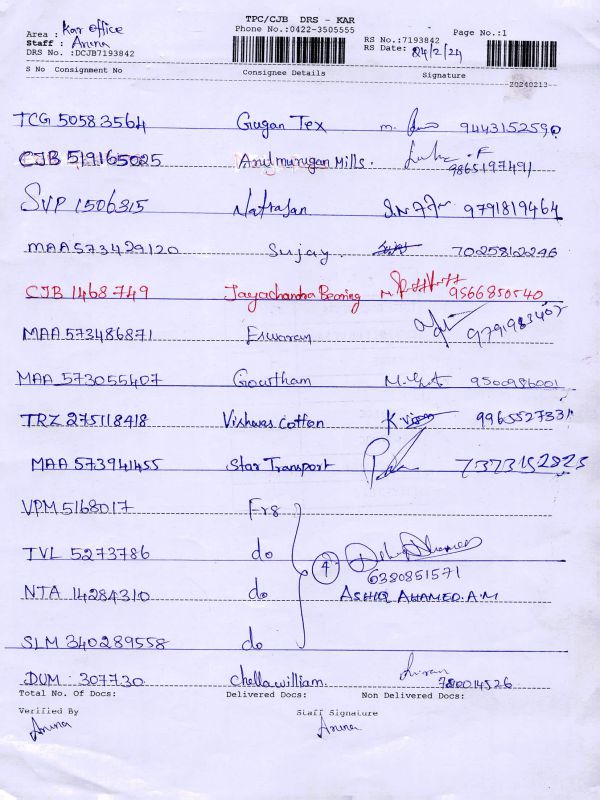 TPC/CJB DRS - KAR
Area : Kar office Phone No.:0422-3505555 RS No.:7193842 Page No.:1
Staff : Aruna RS Date: 24/2/24
DRS No. :DCJB7193842
S No Consignment No Consignee Details Signature
20240213
TCG 50583564 Gugan Tex 9443152590
CJB 519165025 Arulmurugan Mills. 9865197491
SVP 1506315 Natrajan 9791819464
MAA 573429120 Sujay. 7025812246
CJB 1468749 Jayachandra Bearing 9566850540
MAA 573486871 Eswaram
MAA 573055407 Gowtham 9500986001
TRZ 275118418 Vishwas Cotton 9965527331
MAA 573941455 Star Transport 7373152823
VPM 5168017 Frg
TVL 5273786 do 4
6380851571
NTA 14284310 do ASHIQ AHAMED.A.M
SLM 340289558 do
DUM 307730 Chellawilliam.
Total No. Of Docs: Delivered Docs: Non Delivered Docs:
Verified By Staff Signature
Aruna Aruna